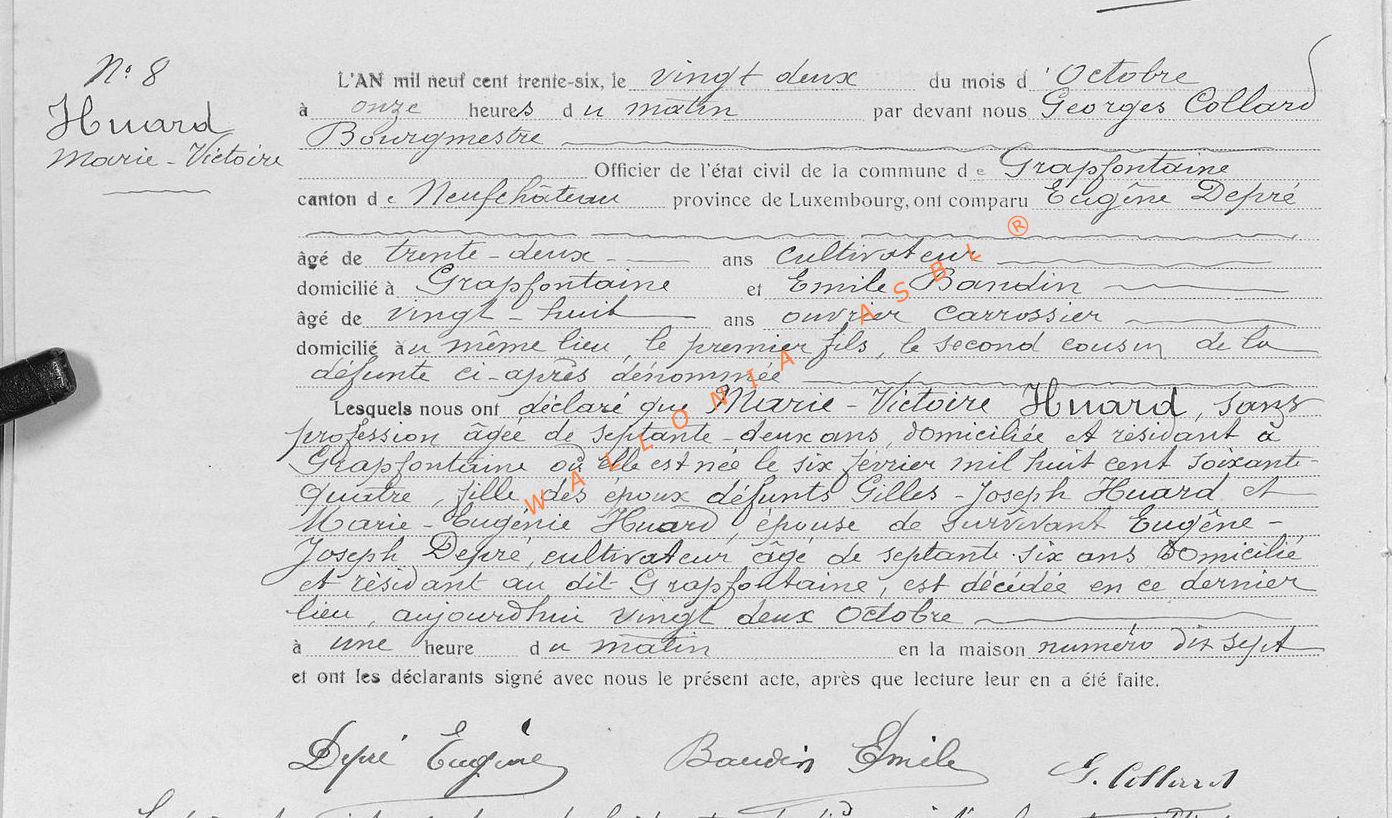 N° 8
Huard
Marie-Victoire
L'AN mil neuf cent trente-six, le vingt deux du mois d'Octobre
à onze heures du matin par devant nous Georges Collard
Bourgmestre
Officier de l'état civil de la commune de Grapfontaine
canton de Neufchâteau province de Luxembourg, ont comparu Eugêne Depré
âgé de trente-deux ans cultivateur
domicilié à Grapfontaine et Emile Baudin
âgé de vingt-huit ans ouvrier carrossier
domicilié au même lieu, le premier fils, le second cousin de la
défunte ci-après dénommée
Lesquels nous ont déclaré que Marie-Victoire Huard, sans
profession âgée de septante-deux ans, domiciliée et résidant à
Grapfontaine où elle est née le six février mil huit cent soixante-
quatre, fille des époux défunts Gilles-Joseph Huard et
Marie-Eugénie Huard, épouse de survivant Eugêne-
Joseph Depré, cultivateur âgé de septante-six ans domicilié
et résidant au dit Grapfontaine, est décédée en ce dernier
lieu, aujourdhui vingt deux Octobre
à une heure du matin en la maison numéro dix sept
et ont les déclarants signé avec nous le présent acte, après que lecture leur en a été faite.
Depré Eugène Baudin Emile G. Collard
WALLONIA ASBL ®